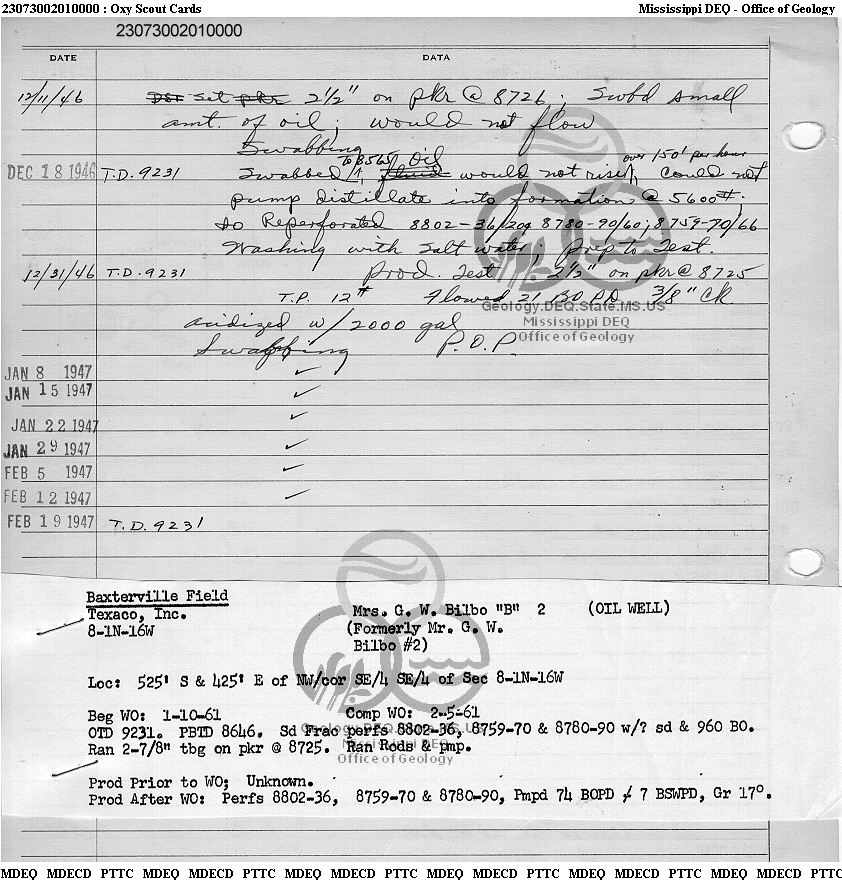 23073002010000 : Oxy Scout Cards Mississippi DEQ - Office of Geology
23073002010000
DATE DATA
12/11/46 Set pkr 2½" on pkr @ 8726; Swbd small
amt. of oil; would not flow
Swabbing
to 8565' Oil over 150' per hour
DEC 18 1946 T.D. 9231 Swabbed, fluid would not rise, Could not
pump distillate into formation @ 5600#;
to Reperforated 8802-36/209 8780-90/60; 8759-70/66
Washing with salt water, prep to Test.
12/31/46 T.D. 9231 Prod. Test - 2½" on pkr @ 8725
T.P. 12# Flowed 21 BOPD 3/8" Ck
Geology.DEQ.State.MS.US
acidized w/ 2000 gal
Mississippi DEQ
Swabbing P.O.P.
Office of Geology
JAN 8 1947 ✓
JAN 15 1947 ✓
JAN 22 1947 ✓
JAN 29 1947 ✓
FEB 5 1947 ✓
FEB 12 1947 ✓
FEB 19 1947 T.D. 9231
Baxterville Field
Texaco, Inc. Mrs. G. W. Bilbo "B" 2 (OIL WELL)
8-1N-16W (Formerly Mr. G. W.
Bilbo #2)
Loc: 525' S & 425' E of NW/cor SE/4 SE/4 of Sec 8-1N-16W
Beg WO: 1-10-61 Comp WO: 2-5-61
OTD 9231. PBTD 8646. Sd Frac perfs 8802-36, 8759-70 & 8780-90 w/? sd & 960 BO.
Geology.DEQ.State.MS.US
Ran 2-7/8" tbg on pkr @ 8725. Ran Rods & pmp.
Mississippi DEQ
Office of Geology
Prod Prior to WO; Unknown.
Prod After WO: Perfs 8802-36, 8759-70 & 8780-90, Pmpd 74 BOPD + 7 BSWPD, Gr 17°.
MDEQ MDECD PTTC MDEQ MDECD PTTC MDEQ MDECD PTTC MDEQ MDECD PTTC MDEQ MDECD PTTC MDEQ MDECD PTTC